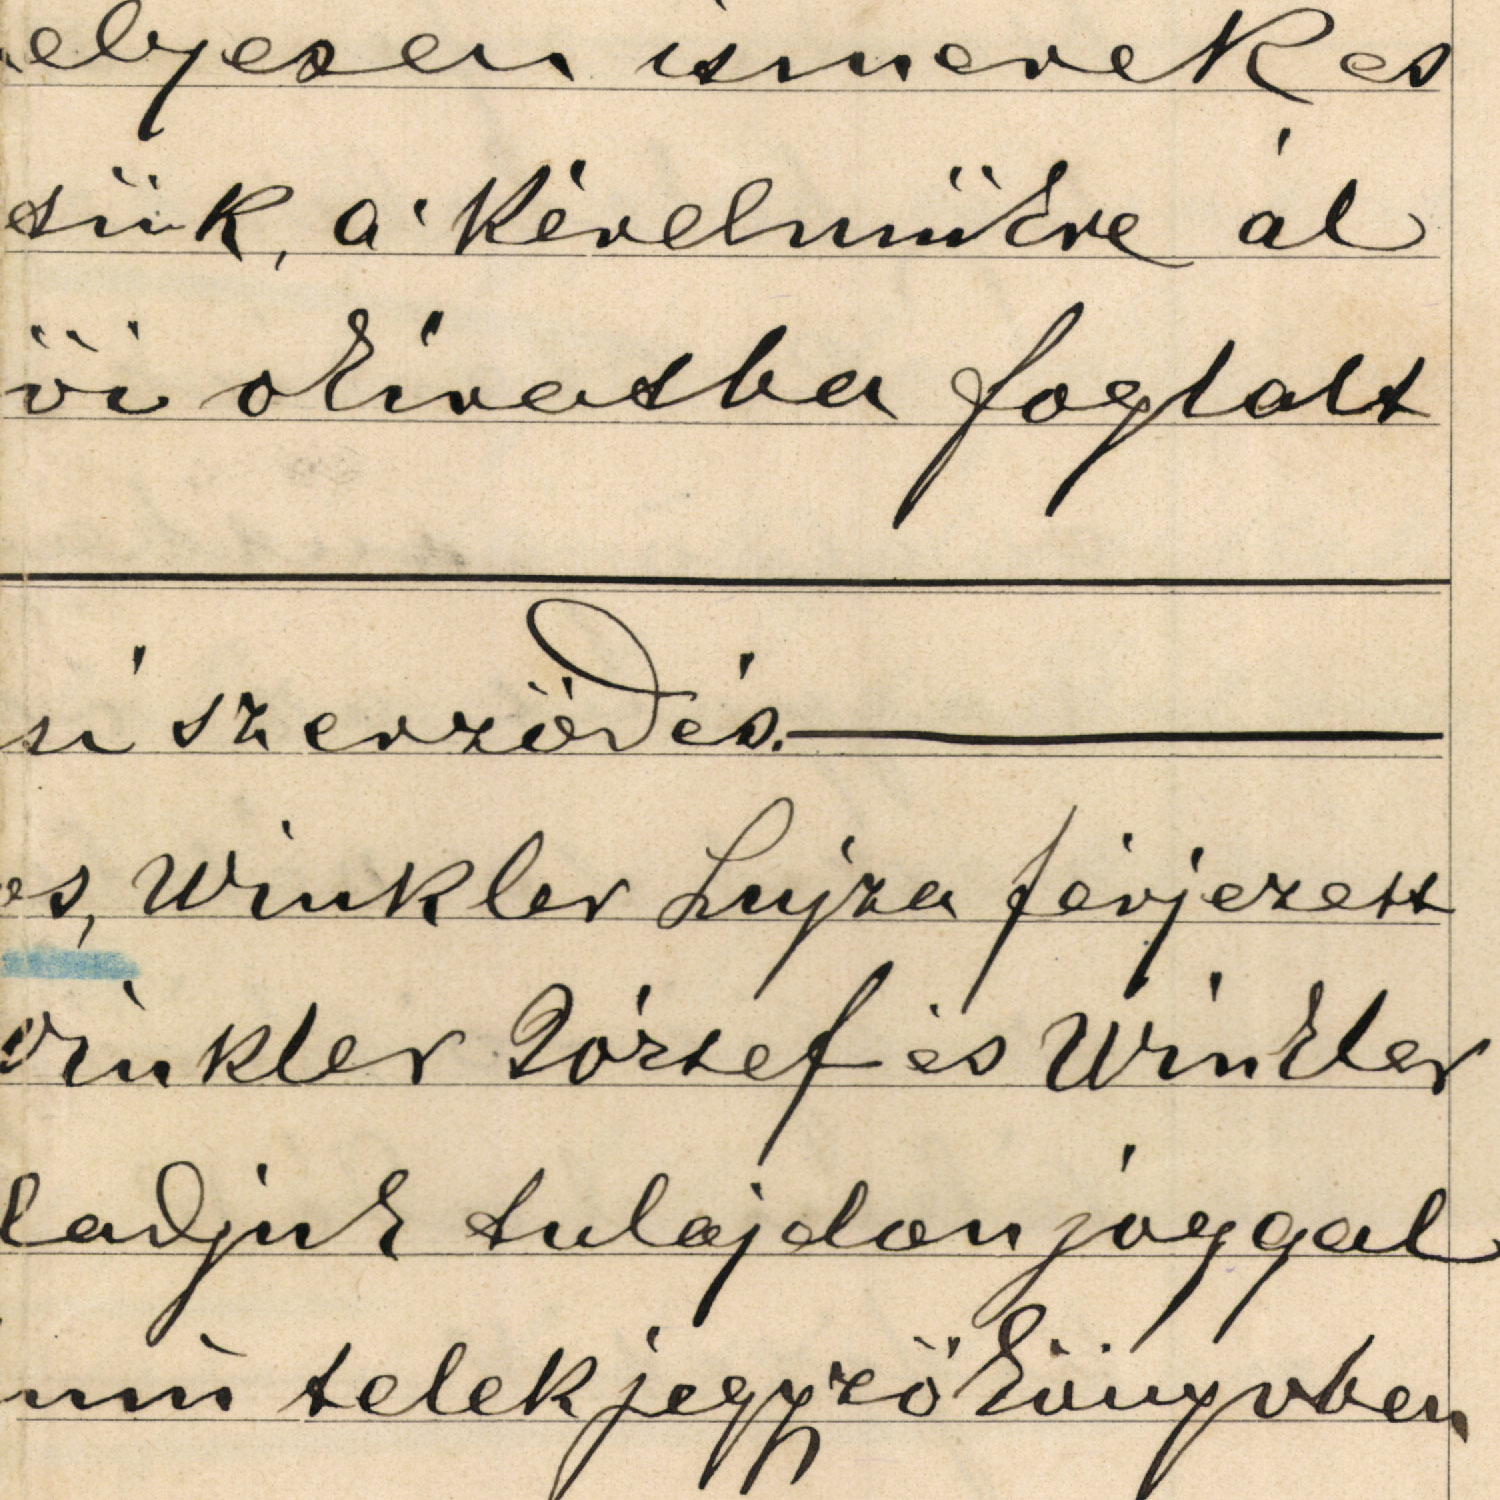 elyesen ismerek es
tük, a' kérelmükre ál
vi okiratba foglalt
si szerzödés.
es, Winkler Lujza férjezett
Winkler József és Winkler
ladjuk tulajdonjoggal
telekjegyzökönyvben